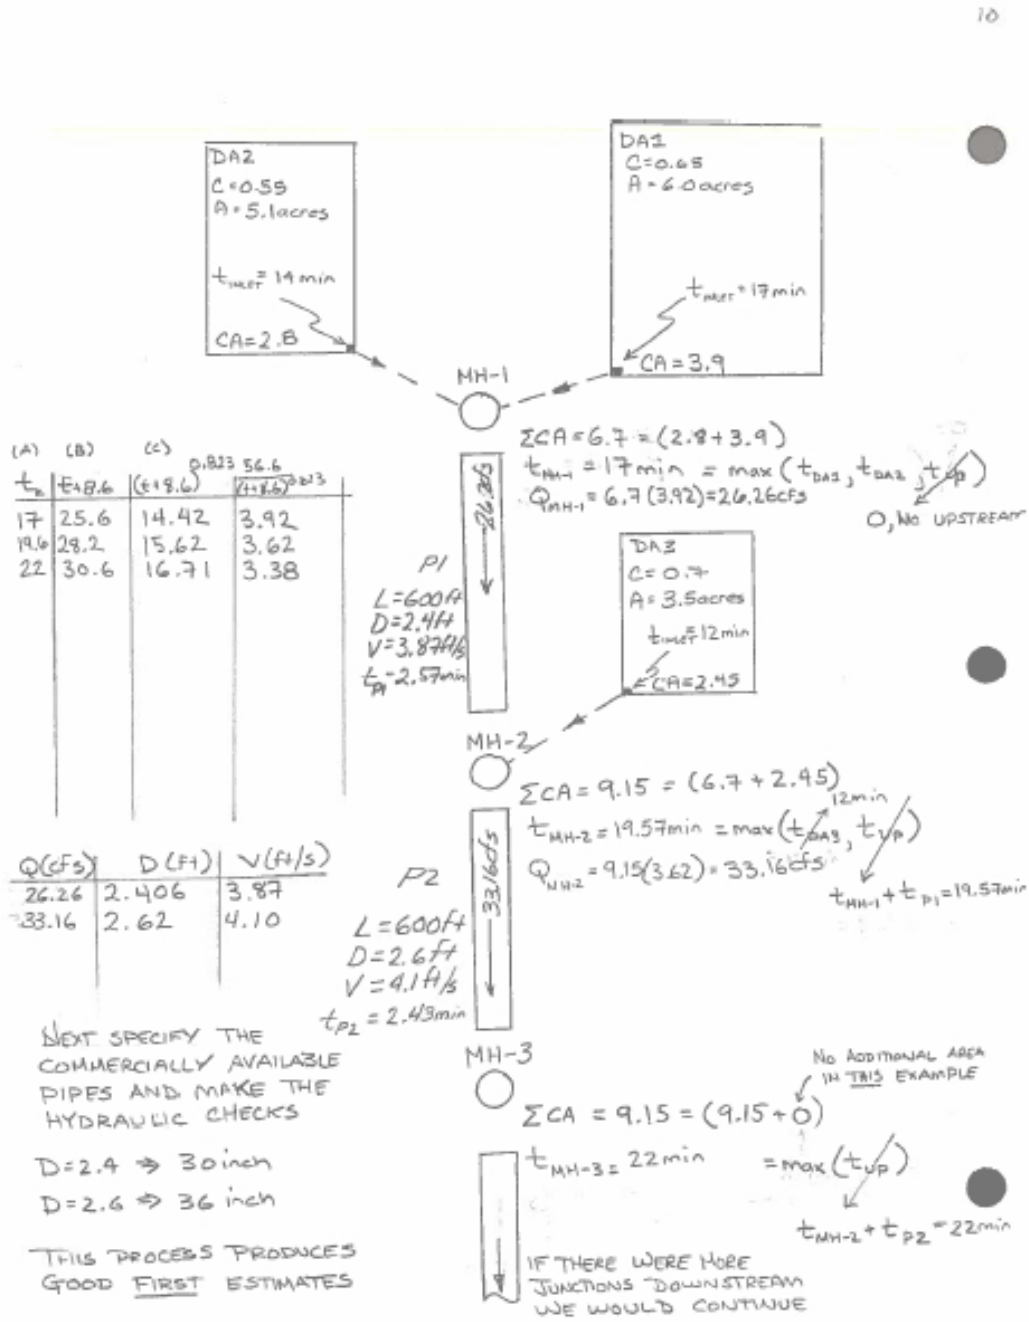 10
DA2
C=0.55
A=5.1acres
t_INLET=14min
CA=2.8
DA1
C=0.65
A=6.0acres
t_INLET=17min
CA=3.9
MH-1
ΣCA=6.7=(2.8+3.9)
t_MH-1=17min = max(t_DA1, t_DA2, t_up)
Q_MH-1=6.7(3.92)=26.26cfs
0, NO UPSTREAM
(A) (B) (C)
t+8.6 (t+8.6)^0.823 56.6/(t+8.6)^0.823
17 25.6 14.42 3.92
19.6 28.2 15.62 3.62
22 30.6 16.71 3.38
26.26cfs
P1
L=600ft
D=2.4ft
V=3.87ft/s
t_P1=2.57min
DA3
C=0.7
A=3.5acres
t_INLET=12min
CA=2.45
MH-2
ΣCA=9.15=(6.7+2.45)
12min
t_MH-2=19.57min=max(t_DA3, t_UP)
Q_MH-2=9.15(3.62)=33.16cfs
t_MH-1+t_P1=19.57min
Q(cfs) D(ft) V(ft/s)
26.26 2.406 3.87
33.16 2.62 4.10
33.16cfs
P2
L=600ft
D=2.6ft
V=4.1ft/s
t_P2=2.43min
NEXT SPECIFY THE
COMMERCIALLY AVAILABLE
PIPES AND MAKE THE
HYDRAULIC CHECKS
D=2.4 ⇒ 30inch
D=2.6 ⇒ 36 inch
THIS PROCESS PRODUCES
GOOD FIRST ESTIMATES
MH-3
NO ADDITIONAL AREA
IN THIS EXAMPLE
ΣCA = 9.15 = (9.15+0)
t_MH-3=22min =max(t_UP)
t_MH-2+t_P2=22min
IF THERE WERE MORE
JUNCTIONS DOWNSTREAM
WE WOULD CONTINUE